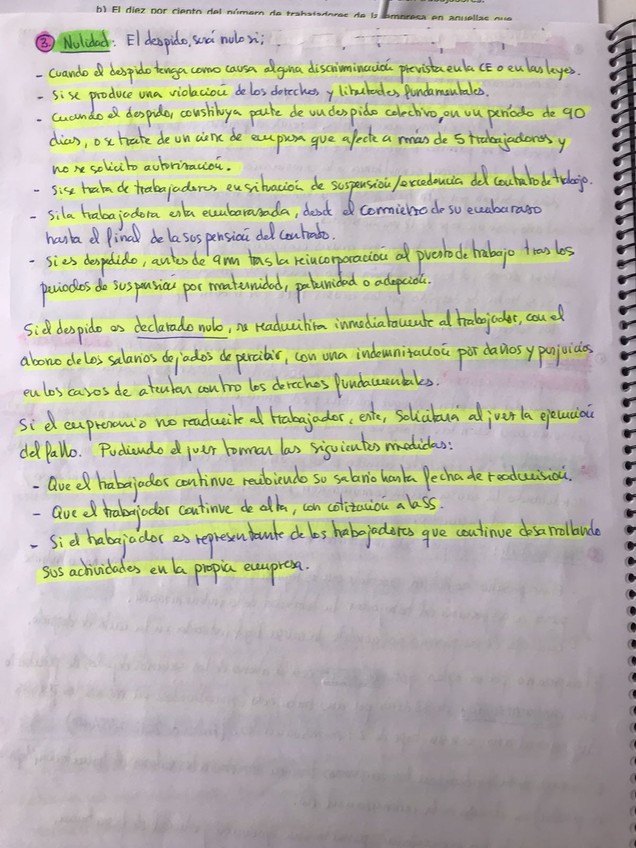 b) El diez por ciento del número de trabajadores de la empresa en aquellas que
3. Nulidad: El despido, será nulo si;
- Cuando el despido tenga como causa alguna discriminación prevista en la CE o en las leyes.
- Si se produce una violación de los derechos y libertades fundamentales.
- Cuando el despido, constituya parte de un despido colectivo, en un período de 90
días, o se trate de un cierre de empresa que afecte a más de 5 trabajadores y
no se solicito autorización.
- Si se trata de trabajadores en situación de suspensión/excedencia del contrato de trabajo.
- Si la trabajadora esta embarasada, desde el comienzo de su embaraso
hasta el final de la suspensión del contrato.
- Si es despedido, antes de 9 mm tras la reincorporación al puesto de trabajo tras los
periodos de suspensión por maternidad, paternidad o adopción.
Si el despido es declarado nulo, se readmitira inmediatamente al trabajador, con el
abono de los salarios dejados de percibir, con una indemnización por daños y perjuicios
en los casos de atentar contra los derechos fundamentales.
Si el empresario no readmite al trabajador, este, solicitará al juez la ejecución
del fallo. Pudiendo el juez tomar las siguientes medidas:
- Que el trabajador continue recibiendo su salario hasta fecha de readmisión.
- Que el trabajador continue de alta, con cotización a la SS.
- Si el trabajador es representante de los trabajadores que continue desarrollando
sus actividades en la propia empresa.